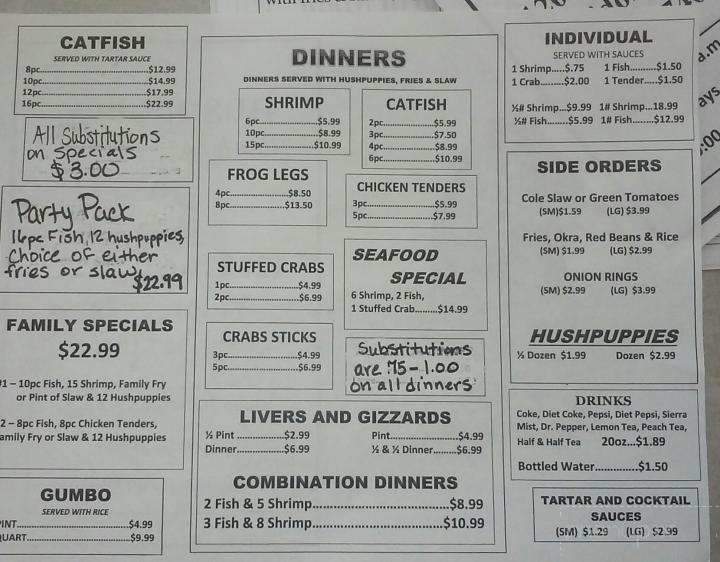 CATFISH
SERVED WITH TARTAR SAUCE
8pc...$12.99
10pc...$14.99
12pc...$17.99
16pc...$22.99
All Substitutions
on Specials
$3.00
Party Pack
16pc Fish, 12 hushpuppies,
choice of either
fries or slaw
$22.99
FAMILY SPECIALS
$22.99
#1 – 10pc Fish, 15 Shrimp, Family Fry
or Pint of Slaw & 12 Hushpuppies
2 – 8pc Fish, 8pc Chicken Tenders,
amily Fry or Slaw & 12 Hushpuppies
GUMBO
SERVED WITH RICE
INT...$4.99
UART...$9.99
DINNERS
DINNERS SERVED WITH HUSHPUPPIES, FRIES & SLAW
SHRIMP
6pc...$5.99
10pc...$8.99
15pc...$10.99
CATFISH
2pc...$5.99
3pc...$7.50
4pc...$8.99
6pc...$10.99
FROG LEGS
4pc...$8.50
8pc...$13.50
CHICKEN TENDERS
3pc...$5.99
5pc...$7.99
STUFFED CRABS
1pc...$4.99
2pc...$6.99
SEAFOOD
SPECIAL
6 Shrimp, 2 Fish,
1 Stuffed Crab...$14.99
CRABS STICKS
3pc...$4.99
5pc...$6.99
Substitutions
are .75-1.00
on all dinners
LIVERS AND GIZZARDS
½ Pint...$2.99 Pint...$4.99
Dinner...$6.99 ½ & ½ Dinner...$6.99
COMBINATION DINNERS
2 Fish & 5 Shrimp...$8.99
3 Fish & 8 Shrimp...$10.99
INDIVIDUAL
SERVED WITH SAUCES
1 Shrimp.....$.75 1 Fish...$1.50
1 Crab...$2.00 1 Tender...$1.50
½# Shrimp...$9.99 1# Shrimp...18.99
½# Fish...$5.99 1# Fish...$12.99
SIDE ORDERS
Cole Slaw or Green Tomatoes
(SM)$1.59 (LG) $3.99
Fries, Okra, Red Beans & Rice
(SM) $1.99 (LG) $2.99
ONION RINGS
(SM) $2.99 (LG) $3.99
HUSHPUPPIES
½ Dozen $1.99 Dozen $2.99
DRINKS
Coke, Diet Coke, Pepsi, Diet Pepsi, Sierra
Mist, Dr. Pepper, Lemon Tea, Peach Tea,
Half & Half Tea 20oz...$1.89
Bottled Water...$1.50
TARTAR AND COCKTAIL
SAUCES
(SM) $1.29 (LG) $2.99
a.m
ays
:00